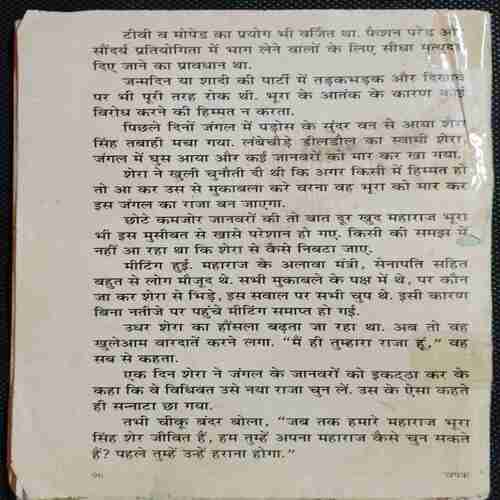 टीवी व मोपेड का प्रयोग भी वर्जित था. फैशन परेड और
सौंदर्य प्रतियोगिता में भाग लेने वालों के लिए सीधा मृत्युदंड
दिए जाने का प्रावधान था.
जन्मदिन या शादी की पार्टी में तड़कभड़क और दिखावे
पर भी पूरी तरह रोक थी. भूरा के आतंक के कारण कोई
विरोध करने की हिम्मत न करता.
पिछले दिनों जंगल में पड़ोस के सुंदर वन से आया शेरा
सिंह तबाही मचा गया. लंबेचौड़े डीलडौल का स्वामी शेरा,
जंगल में घुस आया और कई जानवरों को मार कर खा गया.
शेरा ने खुली चुनौती दी थी कि अगर किसी में हिम्मत हो
तो आ कर उस से मुकाबला करे वरना वह भूरा को मार कर
इस जंगल का राजा बन जाएगा.
छोटे कमजोर जानवरों की तो बात दूर खुद महाराज भूरा
भी इस मुसीबत से खासे परेशान हो गए. किसी की समझ में
नहीं आ रहा था कि शेरा से कैसे निबटा जाए.
मीटिंग हुई. महाराज के अलावा मंत्री, सेनापति सहित
बहुत से लोग मौजूद थे. सभी मुकाबले के पक्ष में थे, पर कौन
जा कर शेरा से भिड़े, इस सवाल पर सभी चुप थे. इसी कारण
बिना नतीजे पर पहुंचे मीटिंग समाप्त हो गई.
उधर शेरा का हौंसला बढ़ता जा रहा था. अब तो वह
खुलेआम वारदातें करने लगा. “मैं ही तुम्हारा राजा हूं,” वह
सब से कहता.
एक दिन शेरा ने जंगल के जानवरों को इकट्ठा कर के
कहा कि वे विधिवत उसे नया राजा चुन लें. उस के ऐसा कहते
ही सन्नाटा छा गया.
तभी चीकू बंदर बोला, “जब तक हमारे महाराज भूरा
सिंह शेर जीवित हैं, हम तुम्हें अपना महाराज कैसे चुन सकते
हैं? पहले तुम्हें उन्हें हराना होगा.”
चंपक